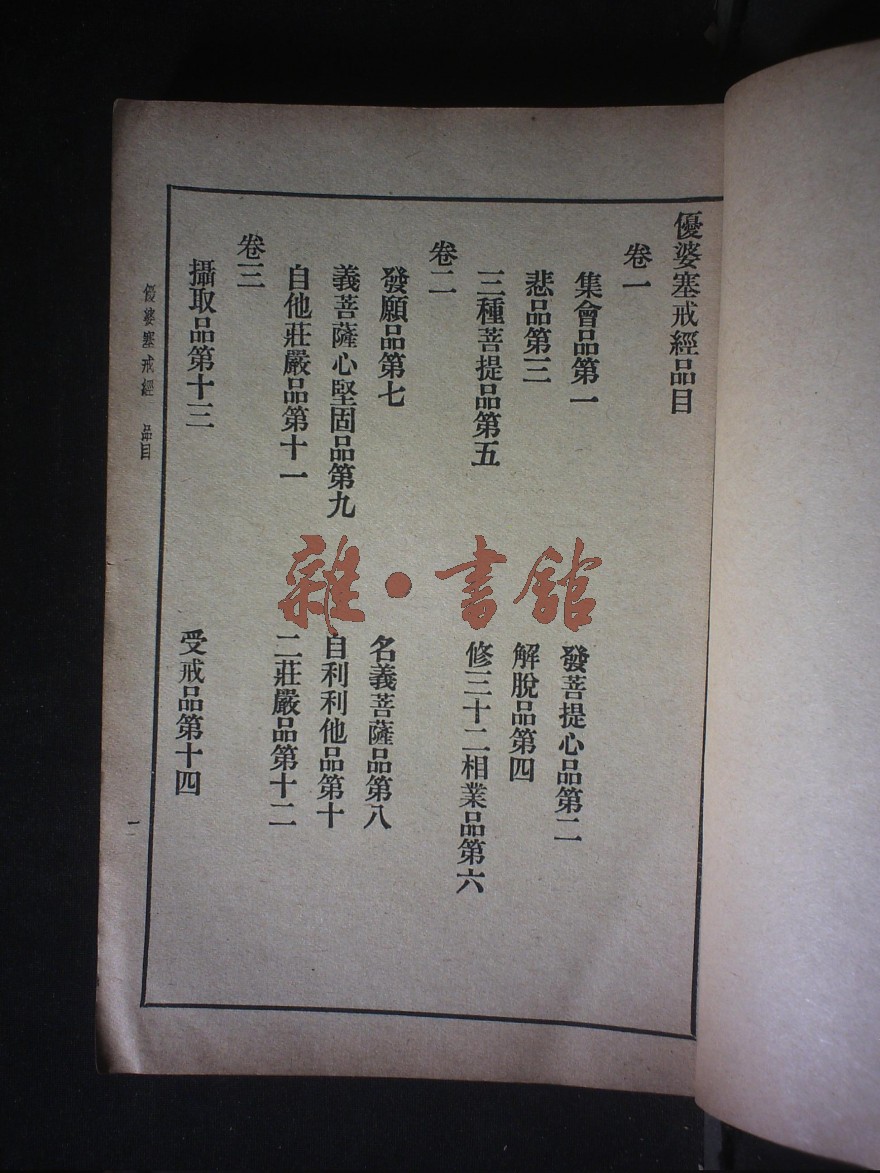 優婆塞戒經品目
卷一
集會品第一
發菩提心品第二
悲品第三
解脫品第四
三種菩提品第五
修三十二相業品第六
卷二
發願品第七
名義菩薩品第八
義菩薩心堅固品第九
自利利他品第十
自他莊嚴品第十一
二莊嚴品第十二
卷三
攝取品第十三
受戒品第十四
優婆塞戒經 品目
一
雜·書館